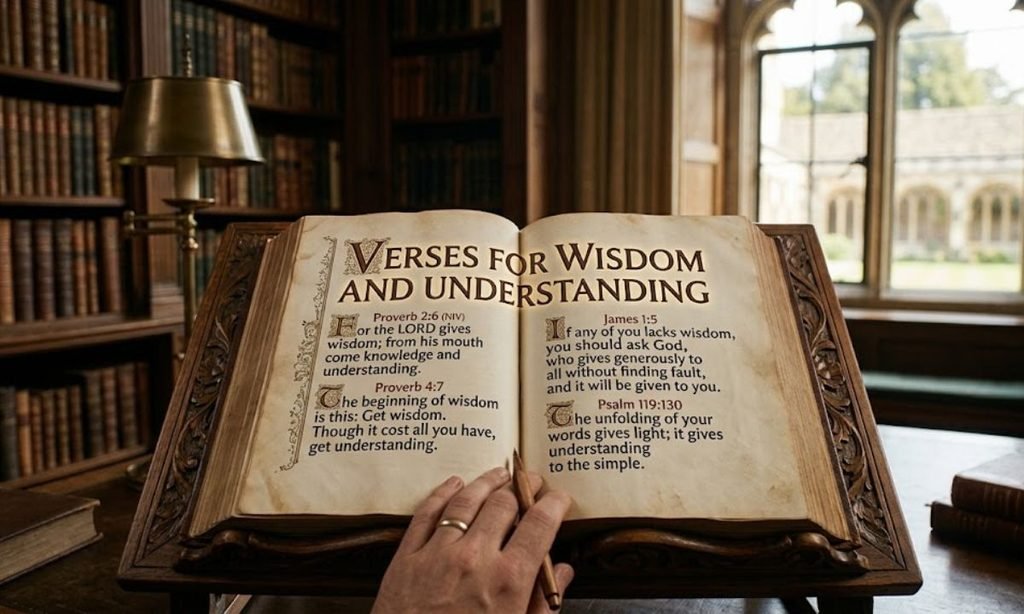 VERSES FOR WISDOM
AND UNDERSTANDING
Proverb 2:6 (NIV)
For the LORD gives
wisdom; from his mouth
come knowledge and
understanding.
Proverb 4:7
The beginning of wisdom
is this: Get wisdom.
Though it cost all you have,
get understanding.
James 1:5
If any of you lacks wisdom,
you should ask God,
who gives generously to
all without finding fault,
and it will be given to you.
Psalm 119:130
The unfolding of your
words gives light; it gives
understanding
to the simple.